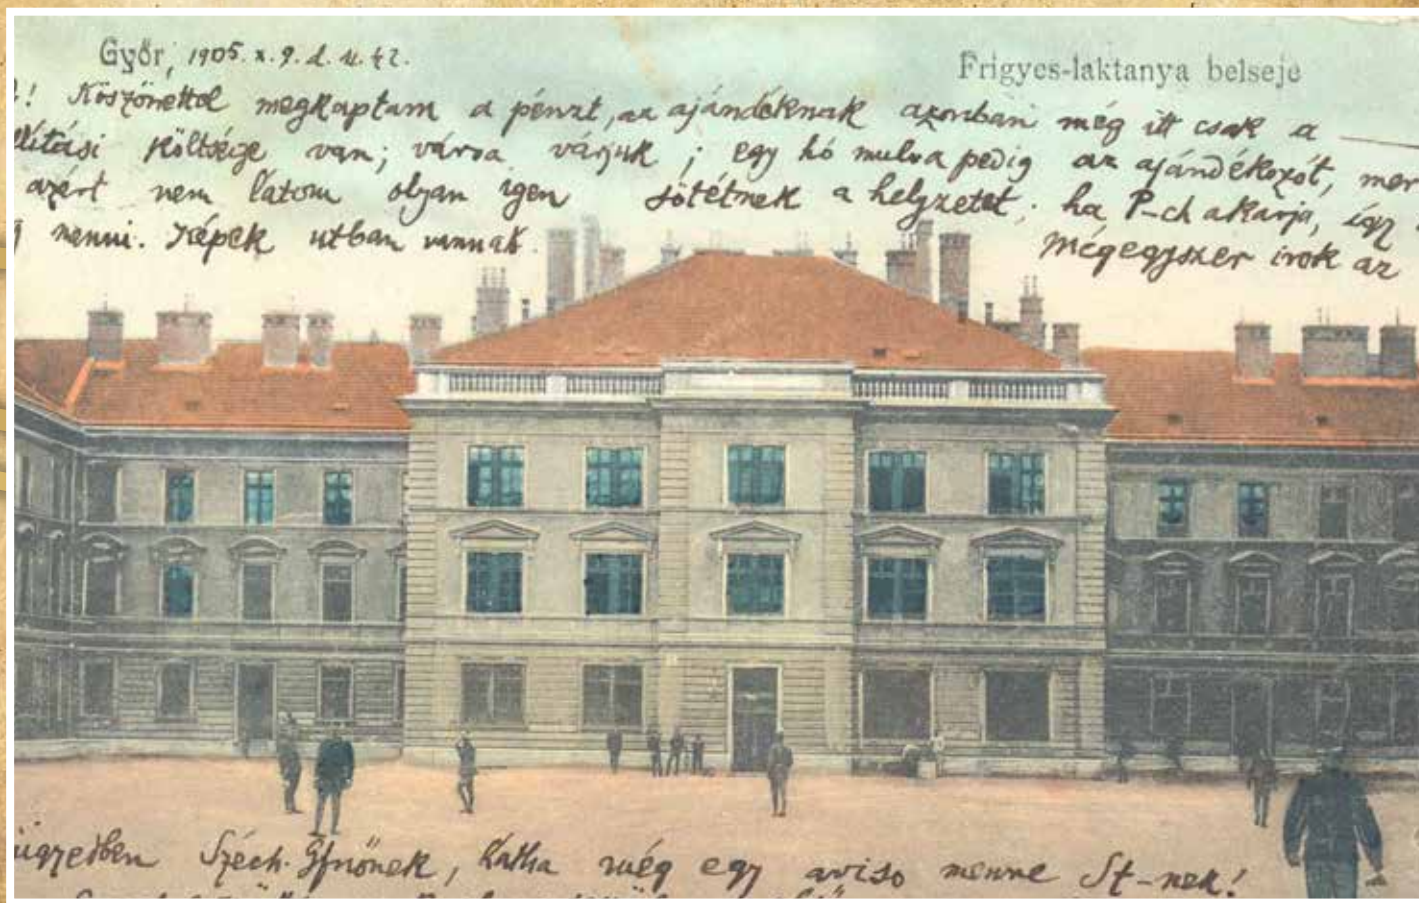 Győr, 1905. x. 9. d. u.
Frigyes-laktanya belseje
! Köszönettel megkaptam a pénzt, az ajándéknak azonban még itt csak a
llitási költsége van; várva várjuk; egy hó mulva pedig az ajándékozót, mer
azért nem látom olyan igen sötétnek a helyzetet; ha P-ch akarja, így
menni. Képek utban vannak.
Mégegyszer irok az
ügyedben Széch. Gfnőnek, hátha még egy aviso menne St-nek!